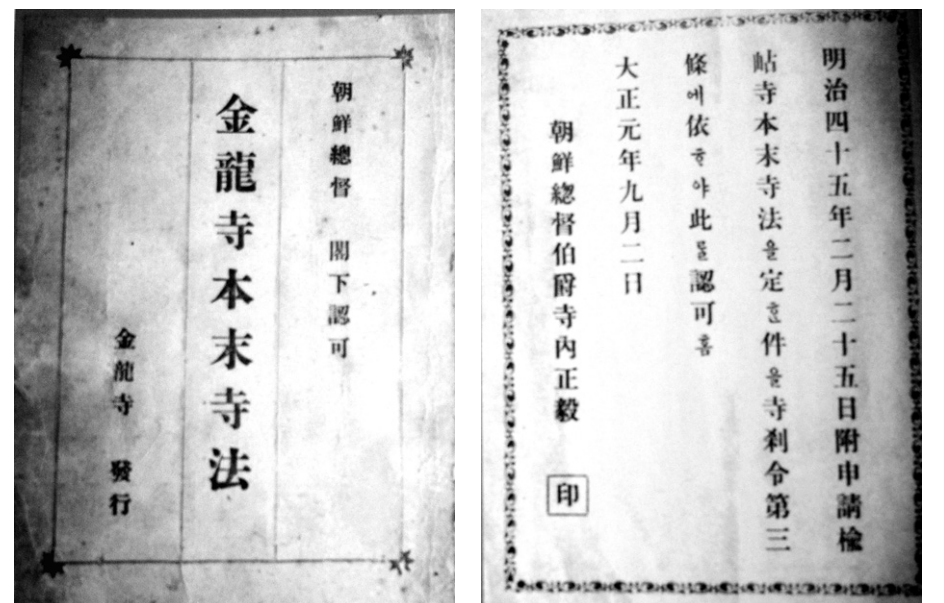 朝鮮總督 閣下認可
金龍寺本末寺法
金龍寺 發行
明治四十五年二月二十五日附申請楡
岾寺本末寺法을定ᄒᆞᆫ件을寺刹令第三
條에依ᄒᆞ야此ᄅᆞᆯ認可홈
大正元年九月二日
朝鮮總督伯爵寺內正毅
印